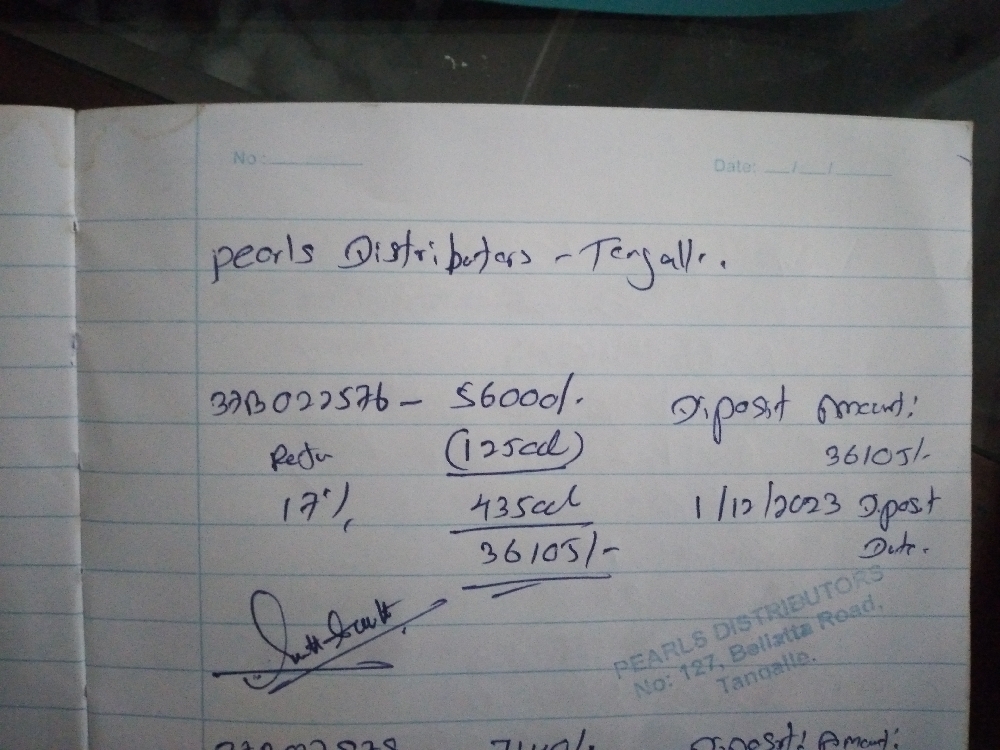 No:
Date: __/__/____
pearls Distributors - Tangalle.
37B022576 - 56000/. Diposit Amount:
(12500) 36105/-
17% 43500 1/12/2023 Diposit
36105/- Date.
PEARLS DISTRIBUTORS
No: 127, Beliatta Road,
Tangalle.
Diposit Amount: